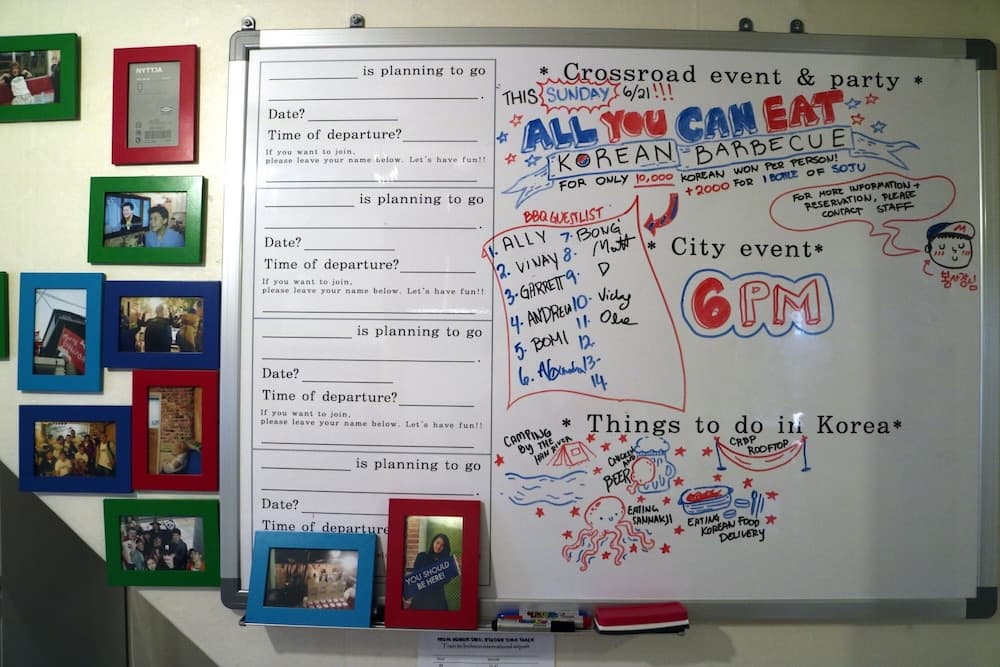 NYTTJA
____________ is planning to go
____________________________.
Date? ____________
Time of departure? __________
If you want to join,
please leave your name below. Let's have fun!!
____________ is planning to go
____________________________.
Date? ____________
Time of departure? __________
If you want to join,
please leave your name below. Let's have fun!!
____________ is planning to go
____________________________.
Date? ____________
Time of departure? __________
If you want to join,
please leave your name below. Let's have fun!!
____________ is planning to go
____________________________.
Date? ____________
Time of departure
* Crossroad event & party *
THIS SUNDAY 6/21!!!
ALL YOU CAN EAT
KOREAN BARBECUE
FOR ONLY 10,000 KOREAN WON PER PERSON!
+2000 FOR 1 BOTTLE OF SOJU
FOR MORE INFORMATION +
RESERVATION, PLEASE
CONTACT STAFF
봉사장님
BBQ GUESTLIST
1. ALLY
2. VINAY
3. GARRETT
4. ANDREW
5. BOMI
6.
7. BONG
8. /Matt
9. D
10. Vicky
11.
12.
13.
14.
* City event*
6PM
* Things to do in Korea*
CAMPING
BY THE
HAN RIVER
CHICKEN
AND
BEER
CRBP
ROOFTOP
EATING
SANNAKJI
EATING
KOREAN FOOD
DELIVERY
YOU SHOULD
BE HERE!